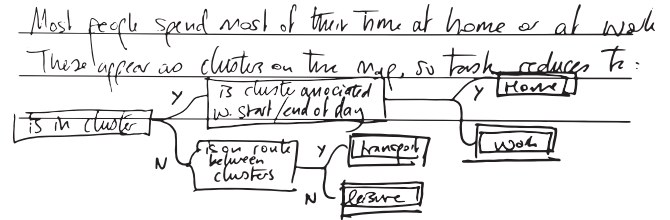 Most people spend most of their time at home or at work
These appear as clusters on the map, so task reduces to:
is in cluster
Y
is cluster associated
w. start/end of day
Y
Home
Work
N
is on route
between
clusters
Y
Transport
N
leisure